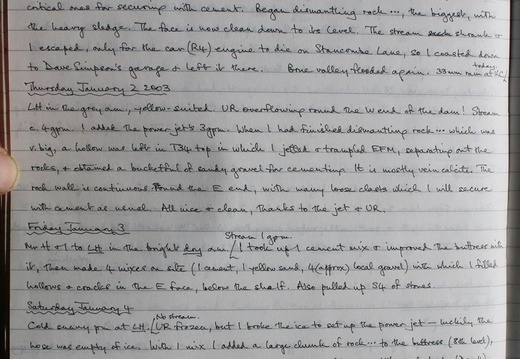 critical ones for securing with cement. Began dismantling rock ..., the biggest, with
the heavy sledge. The face is now clean down to its level. The stream shrank &
I escaped, only for the car (R4) engine to die on Stancombe Lane, so I coasted down
to Dave Simpson's garage & left it there. Bone valley flooded again. 33mm rain at today.
Thursday January 2 2003
LH in the grey am, yellow-suited. UR overflowing round the W end of the dam! Stream
c. 4gpm. I added the power jet's 3gpm. When I had finished dismantling rock ... which was
v. big, a hollow was left in T34 top in which I jetted & trampled EFM, separating out the
rocks, & obtained a bucketful of sandy gravel for cementing. It is mostly vein calcite. The
rock wall is continuous round the E end, with many loose clasts which I will secure
with cement as usual. All nice & clean, thanks to the jet & UR.
Friday January 3
Stream 1gpm.
Mr H & I to LH in the bright day am. I took up 1 cement mix & improved the buttress with
it, then made 4 mixes on site (1 cement, 1 yellow sand, 4 (approx) local gravel) with which I filled
hollows & cracks in the E face, below the shelf. Also pulled up 84 of stones.
Saturday January 4
No stream.
Cold snowy pm at LH. UR frozen, but I broke the ice to set up the power jet — luckily the
hose was empty of ice. With 1 mix I added a large chunk of rock ... to the buttress (8th level),